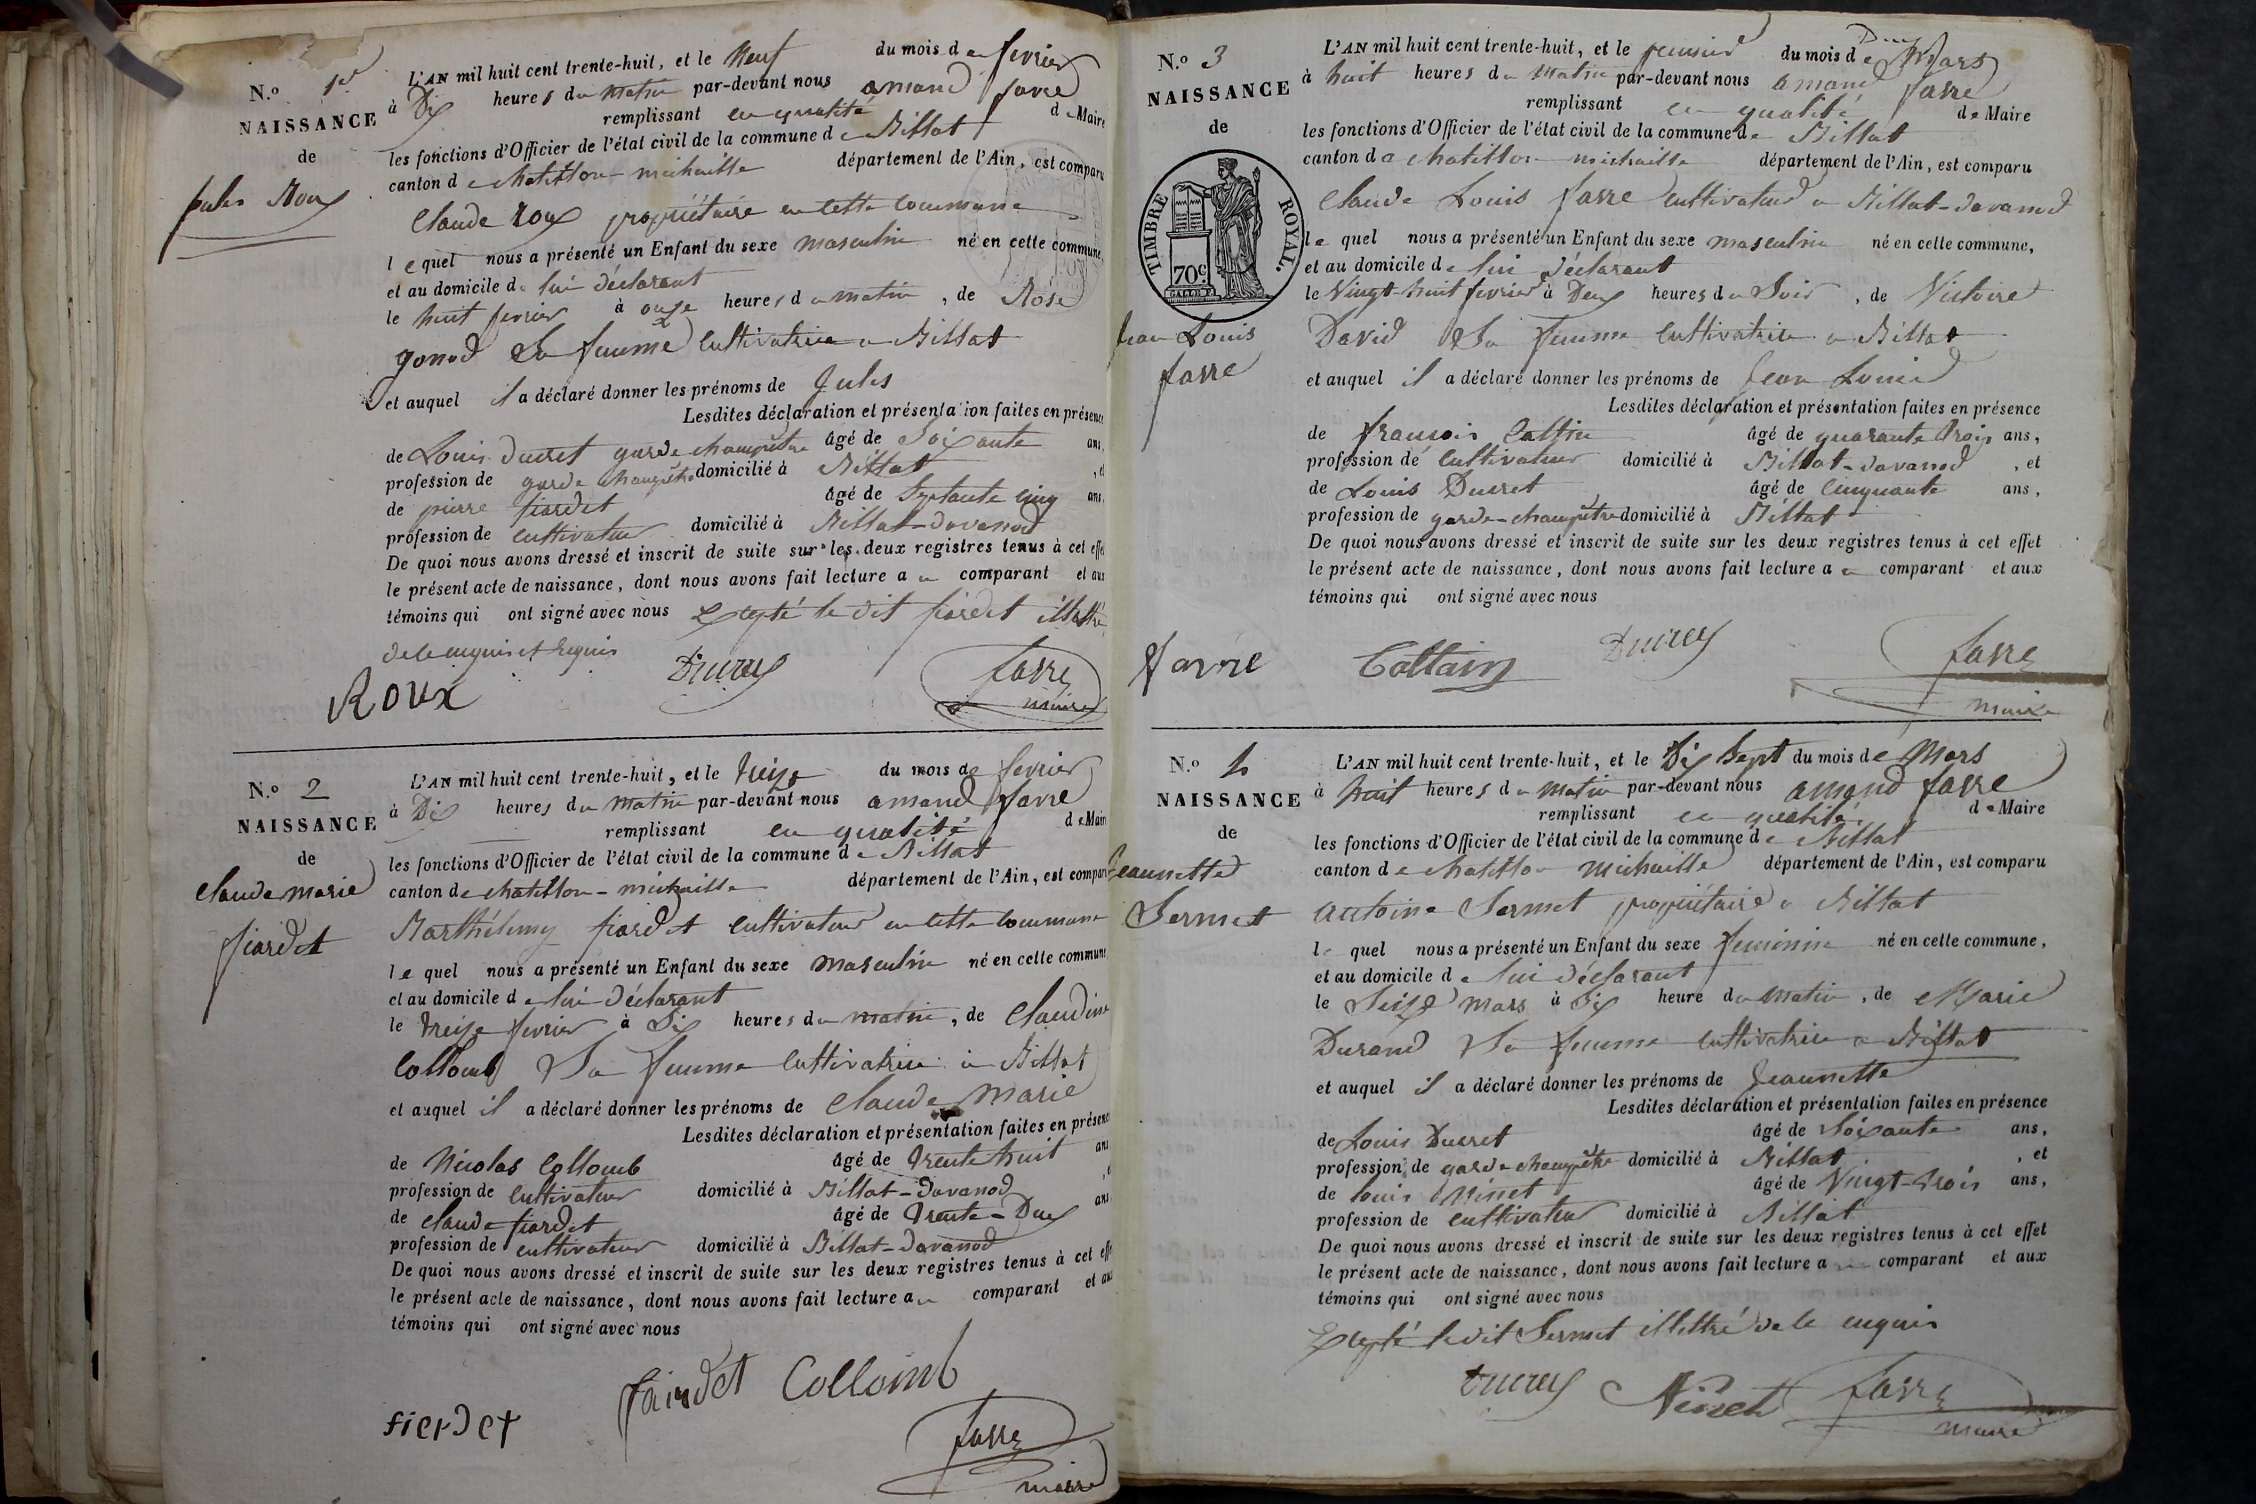 N.o 1er
NAISSANCE
de
Jules Roux
L'AN mil huit cent trente-huit, et le Neuf du mois de fevrier
à Dix heures du matin par-devant nous amand favre
remplissant en qualité de Maire
les fonctions d'Officier de l'état civil de la commune de Billiat
canton de chatillon-michaille département de l'Ain, est comparu
Claude Roux propriétaire en cette commune
lequel nous a présenté un Enfant du sexe masculin né en cette commune,
et au domicile de lui déclarant
le huit fevrier à onze heures du matin, de Rose
gonod Sa femme cultivatrice a Billiat
et auquel il a déclaré donner les prénoms de Jules
Lesdites déclaration et présentation faites en présence
de Louis Ducret garde champêtre âgé de Soixante ans,
profession de garde champêtre domicilié à Billiat, et
de pierre fiardet âgé de Septante cinq ans,
profession de cultivateur domicilié à Billiat-davanod
De quoi nous avons dressé et inscrit de suite sur les deux registres tenus à cet effet
le présent acte de naissance, dont nous avons fait lecture au comparant et aux
témoins qui ont signé avec nous Excepté le dit fiardet illettré
de ce enquis et requis
Roux Ducret favre
maire
N.o 2
NAISSANCE
de
Claude marie
fiardet
L'AN mil huit cent trente-huit, et le treize du mois de fevrier
à Dix heures du matin par-devant nous amand favre
remplissant en qualité de Maire
les fonctions d'Officier de l'état civil de la commune de Billiat
canton de chatillon-michaille département de l'Ain, est comparu
Barthélemy fiardet cultivateur en cette commune
lequel nous a présenté un Enfant du sexe masculin né en cette commune
et au domicile de lui déclarant
le treize fevrier à Six heures du matin, de Claudine
Collomb Sa femme cultivatrice a Billiat
et auquel il a déclaré donner les prénoms de Claude Marie
Lesdites déclaration et présentation faites en présence
de Nicolas Collomb âgé de trente huit ans
profession de cultivateur domicilié à Billiat-davanod
de claude fiardet âgé de trente-Deux ans
profession de cultivateur domicilié à Billiat-davanod
De quoi nous avons dressé et inscrit de suite sur les deux registres tenus à cet effet
le présent acte de naissance, dont nous avons fait lecture au comparant et aux
témoins qui ont signé avec nous
fairdet Collomb
fierdet
favre
maire
N.o 3
NAISSANCE
de
TIMBRE ROYAL.
70c
Jean Louis
favre
L'AN mil huit cent trente-huit, et le premier du mois de Mars
à huit heures du matin par-devant nous amand favre
remplissant en qualité de Maire
les fonctions d'Officier de l'état civil de la commune de Billiat
canton de chatillon-michaille département de l'Ain, est comparu
Claude Louis favre cultivateur a Billiat-davanod
lequel nous a présenté un Enfant du sexe masculin né en cette commune,
et au domicile de lui déclarant
le Vingt-huit fevrier à Deux heures du Soir, de Victoire
David Sa femme cultivatrice a Billiat
et auquel il a déclaré donner les prénoms de Jean Louis
Lesdites déclaration et présentation faites en présence
de françois âgé de quarante trois ans,
profession de cultivateur domicilié à Billiat-davanod, et
de Louis Ducret âgé de cinquante ans,
profession de garde-champêtre domicilié à Billiat
De quoi nous avons dressé et inscrit de suite sur les deux registres tenus à cet effet
le présent acte de naissance, dont nous avons fait lecture au comparant et aux
témoins qui ont signé avec nous
favre Ducret favre
maire
N.o 4
NAISSANCE
de
Jeannette
Sermet
L'AN mil huit cent trente-huit, et le Dix Sept du mois de Mars
à huit heures du matin par-devant nous amand favre
remplissant en qualité de Maire
les fonctions d'Officier de l'état civil de la commune de Billiat
canton de chatillon michaille département de l'Ain, est comparu
antoine Sermet propriétaire a Billiat
lequel nous a présenté un Enfant du sexe feminin né en cette commune,
et au domicile de lui déclarant
le Seize mars à Six heure du matin, de Marie
Durand Sa femme cultivatrice a Billiat
et auquel il a déclaré donner les prénoms de Jeannette
Lesdites déclaration et présentation faites en présence
de Louis Ducret âgé de Soixante ans,
profession de garde champêtre domicilié à Billiat, et
de louis Ninet âgé de Vingt-trois ans,
profession de cultivateur domicilié à Billiat
De quoi nous avons dressé et inscrit de suite sur les deux registres tenus à cet effet
le présent acte de naissance, dont nous avons fait lecture au comparant et aux
témoins qui ont signé avec nous
Excepté le dit Sermet illettré de ce enquis
Ducret Ninet favre
maire